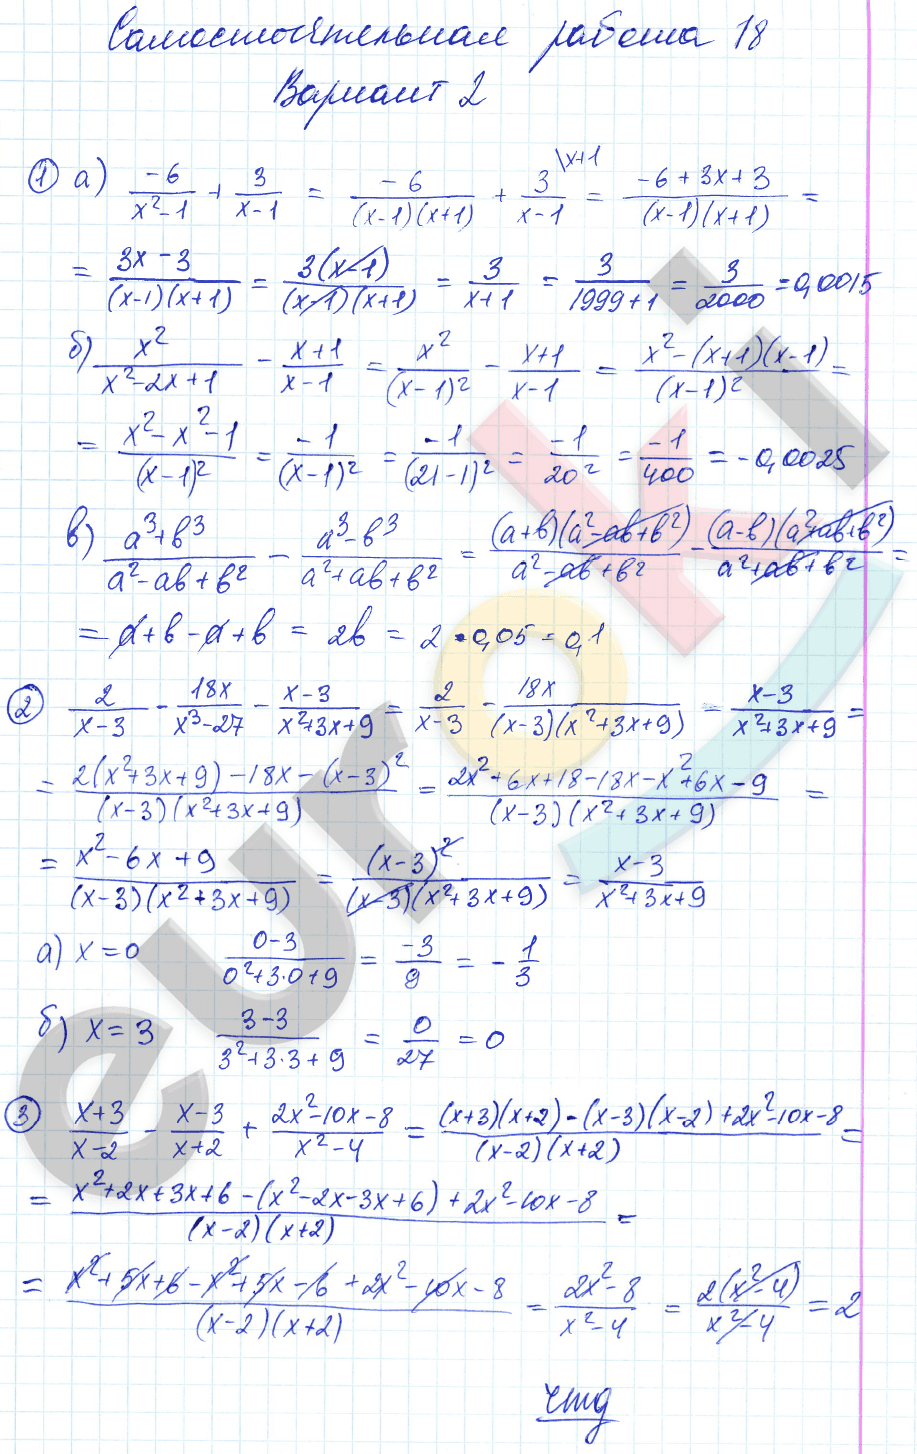 Самостоятельная работа 18
Вариант 2
① а) -6/(x²-1) + 3/(x-1) = -6/((x-1)(x+1)) + 3\x+1/(x-1) = (-6+3x+3)/((x-1)(x+1)) =
= (3x-3)/((x-1)(x+1)) = 3(x-1)/((x-1)(x+1)) = 3/(x+1) = 3/(1999+1) = 3/2000 = 0,0015
б) x²/(x²-2x+1) - (x+1)/(x-1) = x²/(x-1)² - (x+1)/(x-1) = (x²-(x+1)(x-1))/(x-1)² =
= (x²-x²-1)/(x-1)² = -1/(x-1)² = -1/(21-1)² = -1/20² = -1/400 = -0,0025
в) (a³+b³)/(a²-ab+b²) - (a³-b³)/(a²+ab+b²) = (a+b)(a²-ab+b²)/(a²-ab+b²) - (a-b)(a²+ab+b²)/(a²+ab+b²) =
= a+b-a+b = 2b = 2·0,05 = 0,1
② 2/(x-3) - 18x/(x³-27) - (x-3)/(x²+3x+9) = 2/(x-3) - 18x/((x-3)(x²+3x+9)) - (x-3)/(x²+3x+9) =
= (2(x²+3x+9)-18x-(x-3)²)/((x-3)(x²+3x+9)) = (2x²+6x+18-18x-x²+6x-9)/((x-3)(x²+3x+9)) =
= (x²-6x+9)/((x-3)(x²+3x+9)) = (x-3)²/((x-3)(x²+3x+9)) = (x-3)/(x²+3x+9)
а) x=0 (0-3)/(0²+3·0+9) = -3/9 = -1/3
б) x=3 (3-3)/(3²+3·3+9) = 0/27 = 0
③ (x+3)/(x-2) - (x-3)/(x+2) + (2x²-10x-8)/(x²-4) = ((x+3)(x+2)-(x-3)(x-2)+2x²-10x-8)/((x-2)(x+2)) =
= (x²+2x+3x+6-(x²-2x-3x+6)+2x²-10x-8)/((x-2)(x+2)) =
= (x²+5x+6-x²+5x-6+2x²-10x-8)/((x-2)(x+2)) = (2x²-8)/(x²-4) = 2(x²-4)/(x²-4) = 2
чтд
euroki